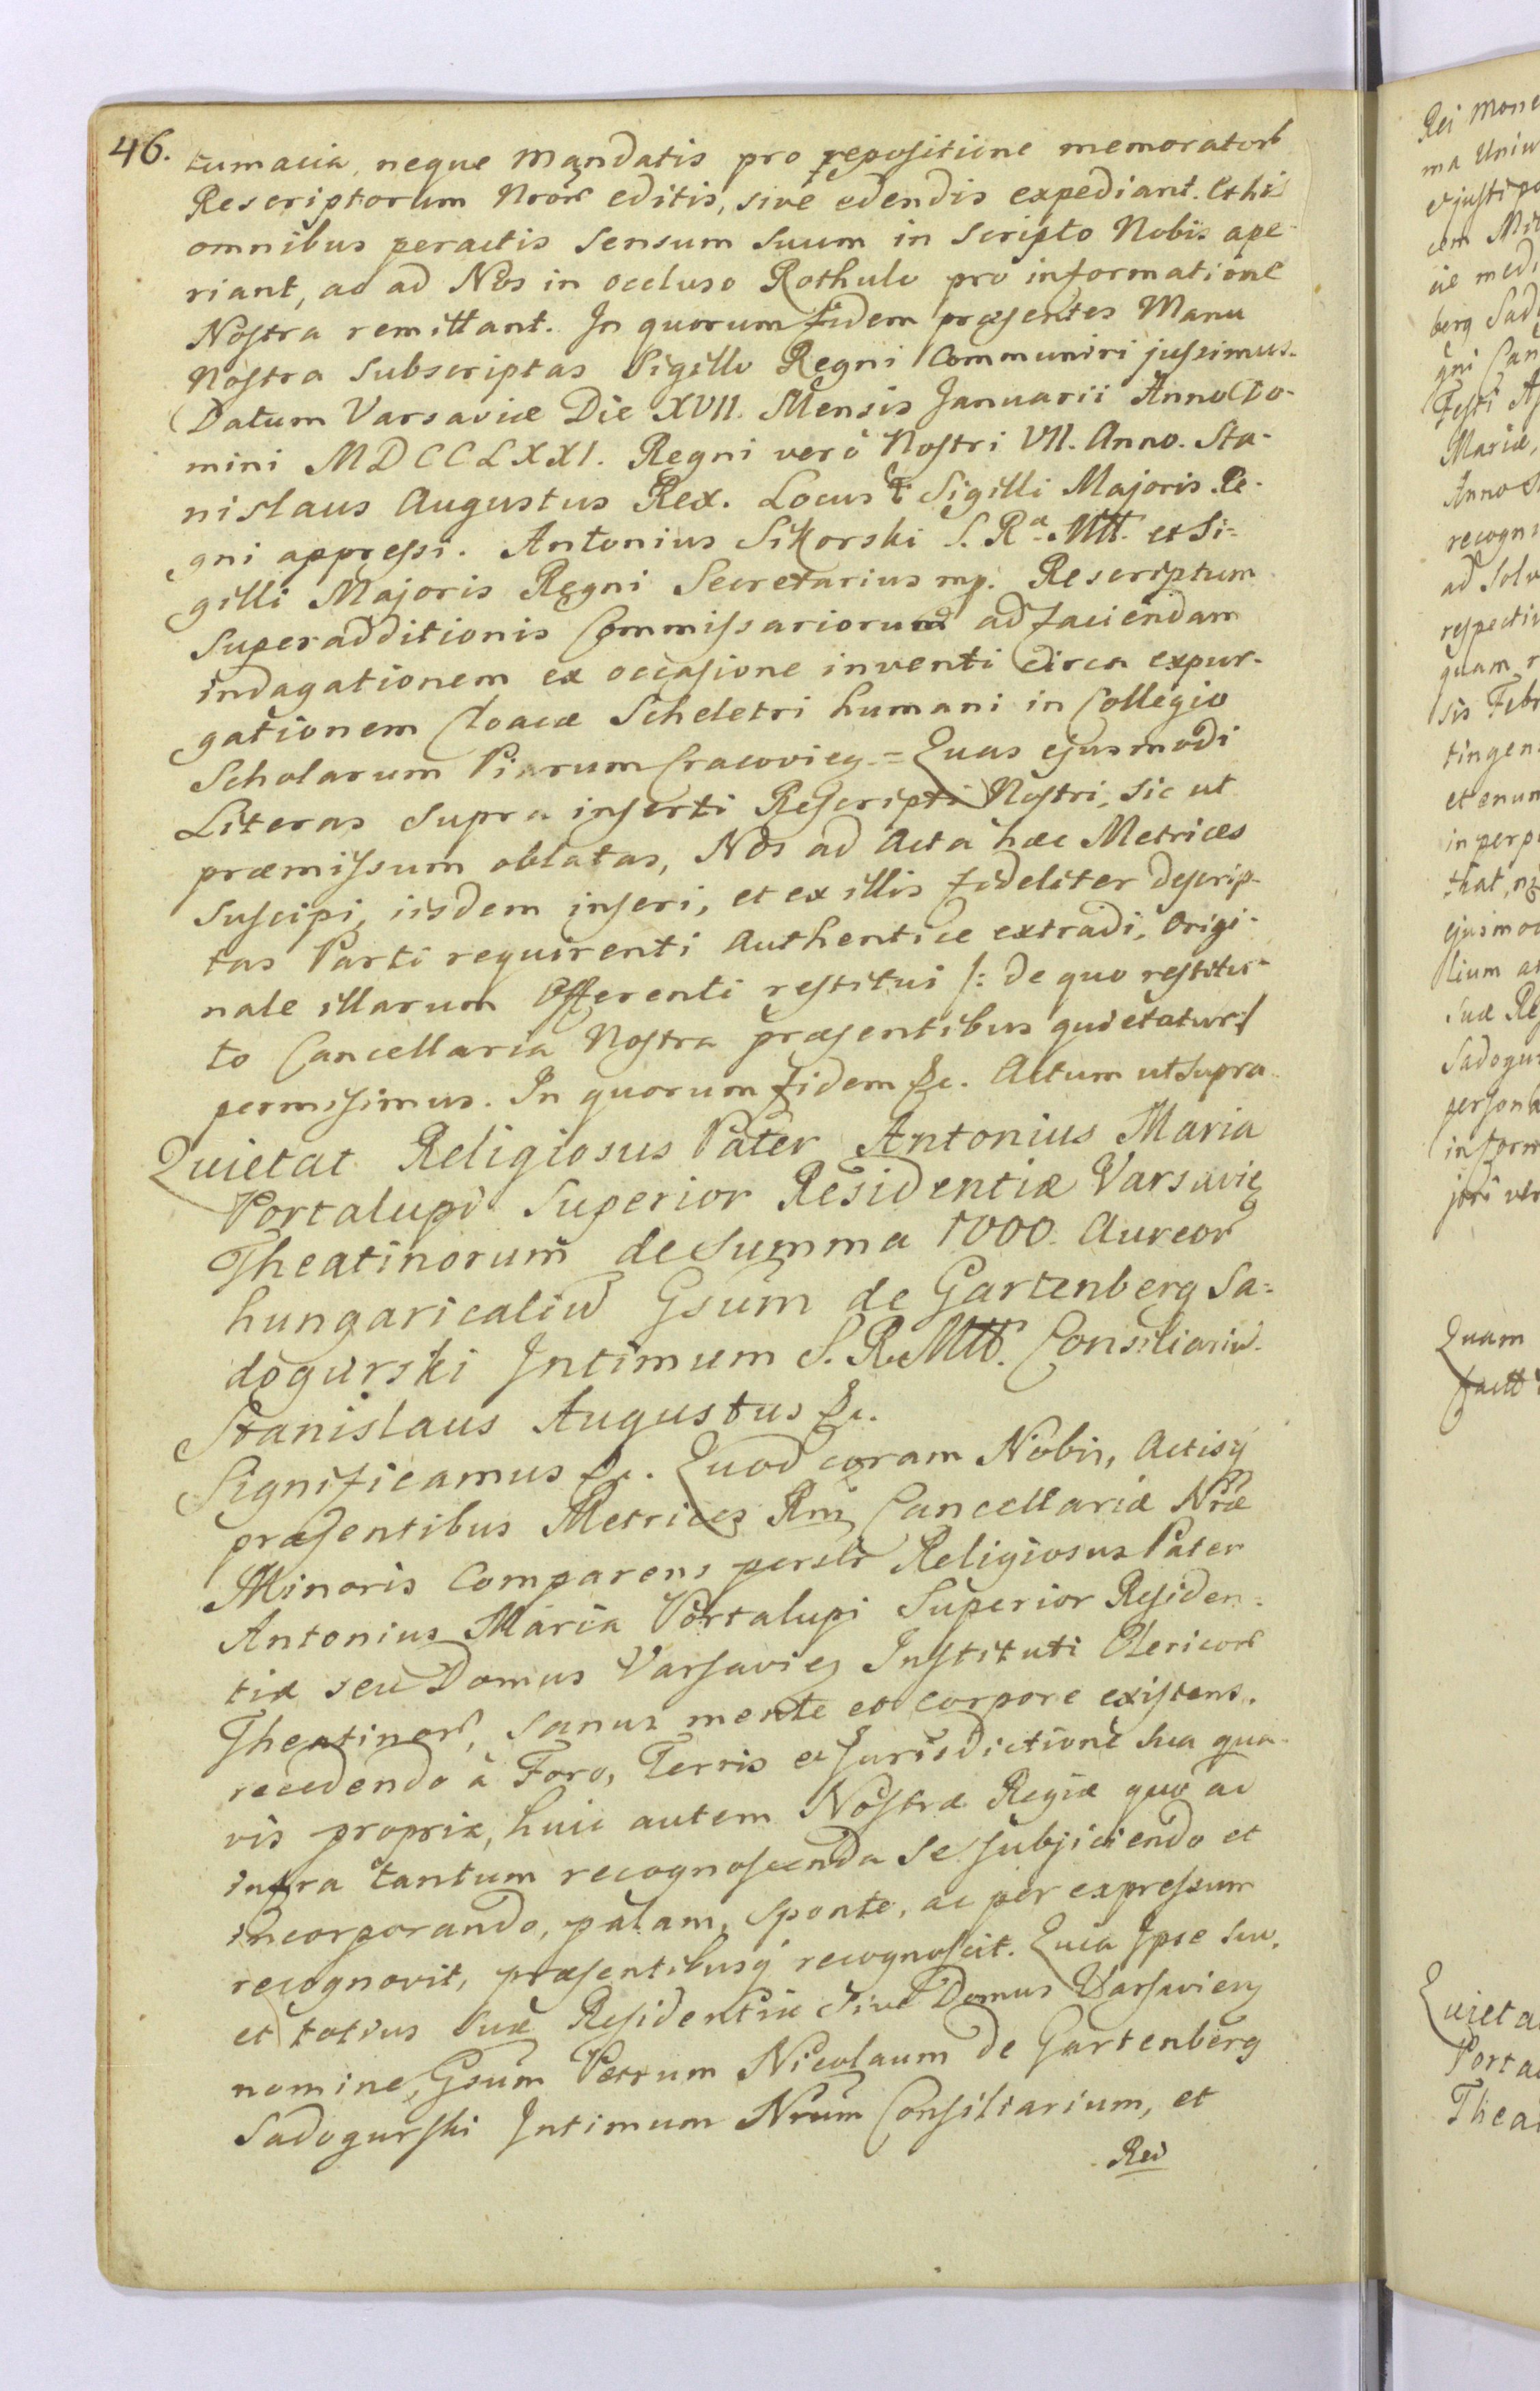 46.
tumacia, neque Mandatis pro repositione memorator
Rescriptorum Nror editis, sive edendis expediant. Et his
omnibus peractis Sensum Suum in Scripto Nobis ape-
riant, ac ad Nos in occluso Rothulo pro informatione
Nostra remittant. In quorum fidem præsentes Manu
Nostra Subscriptas Sigillo Regni Communiri jussimus.
Datum Varsaviæ Die XVII. Mensis Januarii Anno Do-
mini MDCCLXXI. Regni verò Nostri VII. Anno. Sta-
nislaus Augustus Rex. Locus Sigilli Majoris Re-
gni appressi. Antonius Sikorski S. Rᵃ. Mtt. et Si-
gilli Majoris Regni Secretarius mp. Rescriptum
Superadditionis Commissariorum ad faciendam
indagationem ex occasione inventi circa expur-
gationem Cloacæ Scheletri humani in Collegio
Scholarum Piarum Cracovien = Quas ejusmodi
Literas Supra inserti Rescripti Nostri, sic ut
præmissum oblatas, Nos ad Acta hæc Metrices
Suscipi, iisdem inseri, et ex illis fideliter descrip-
tas Parti requirenti Authentice extradi, Origi-
nale illarum Offerenti restitui /: de quo restitu-
to Cancellaria Nostra præsentibus quietatur :/
permisimus. In quorum fidem &c. Actum ut Supra
Quietat Religiosus Pater Antonius Maria
Portalupi Superior Residentiæ Varsavien
Theatinorum de Summa 1000. Aureor
hungaricaliu Gsum de Gartenberg Sa-
dogurski Intimum S. R. Mtt. Consiliariu.
Stanislaus Augustus &c.
Significamus &c. Quod coram Nobis, Actisq
præsentibus Metrices Rni Cancellariæ Nræ
Minoris Comparens perslr Religiosus Pater
Antonius Maria Portalupi Superior Residen-
tiæ seu Domus Varsavien Instituti Clericor
Theatinor, Sanus mente et corpore existens.
recedendo à Foro, Terris et Jurisdictione sua qua-
vis propria, huic autem Nostræ Regiæ quo ad
infra tantum recognoscenda Se subjiciendo et
incorporando, palam, sponte, ac per expressum
recognovit, præsentibusq recognoscit. Quia Ipse Suo.
et totius Suæ Residentiæ Sive Domus Varsavien
nomine, Gsum Petrum Nicolaum de Gartenberg
Sadogurski Intimum Nrum Consiliarium, et
Rei
Rei Mone
ma Univ
cem
berg Sad
gni Can
Festi
Mariæ,
Anno
recogn
ad Solv
respectiv
quam
sis Febr
tingen
et enum
in perp
ejusmod
lium
suæ
Sadogur
person
in form
Quam
Quieta
Porta
Thea